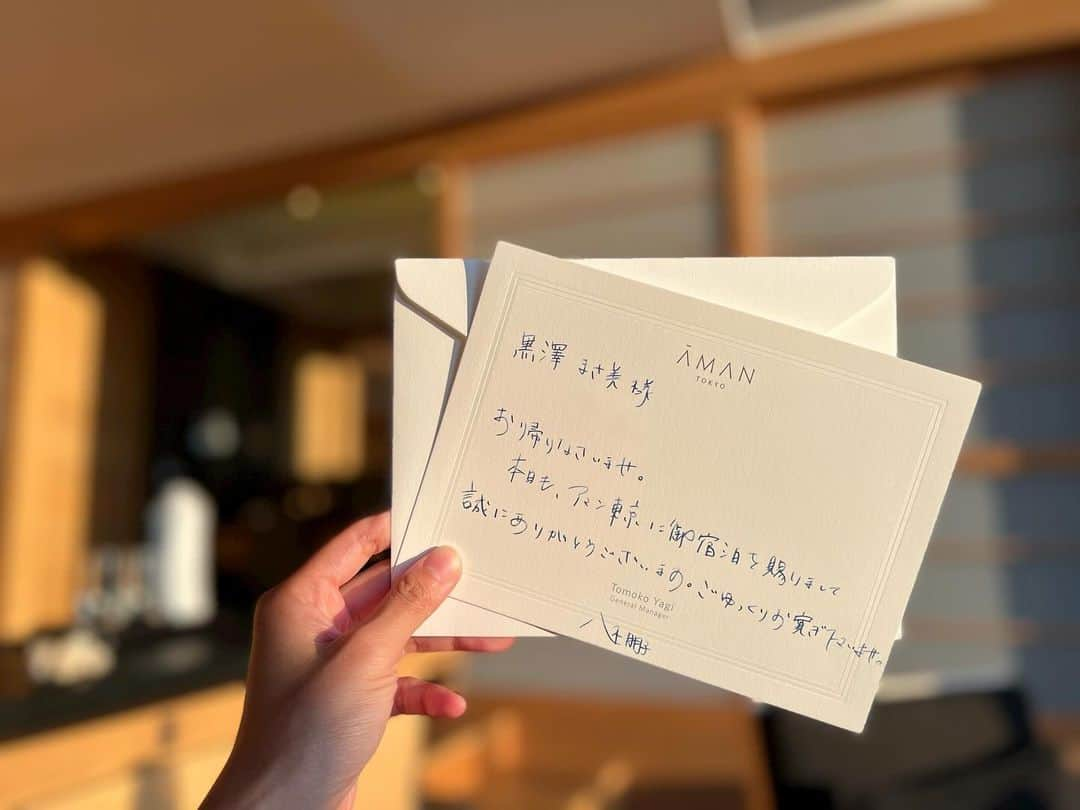 ĀMAN
TOKYO
黒澤 まさ美 様
お帰りなさいませ。
本日も、アマン東京に御宿泊を賜りまして
誠にありがとうございます。ごゆっくりお寛ぎ下さいませ。
Tomoko Yagi
General Manager
八木朋子